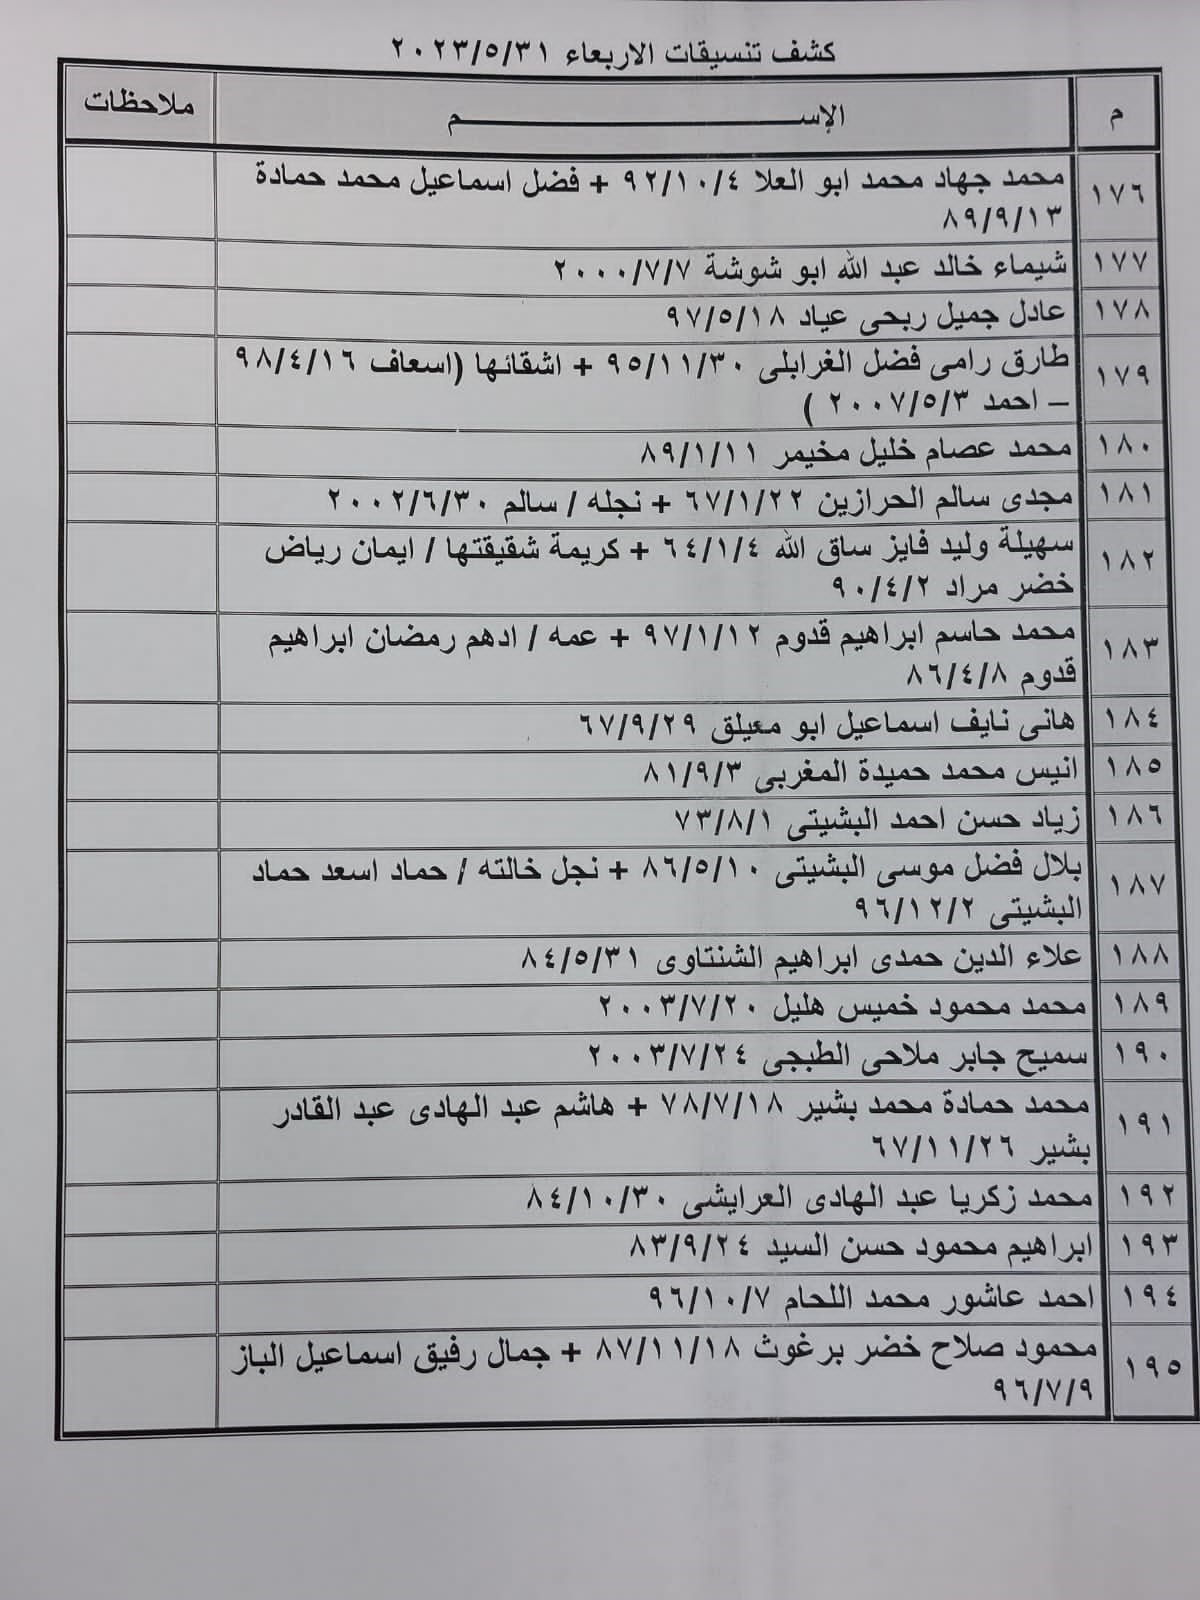 كشف تنسيقات الاربعاء ٢٠٢٣/٥/٣١
م الإســـــــم ملاحظات
١٧٦ محمد جهاد محمد ابو العلا ٩٢/١٠/٤ + فضل اسماعيل محمد حمادة
٨٩/٩/١٣
١٧٧ شيماء خالد عبد الله ابو شوشة ٢٠٠٠/٧/٧
١٧٨ عادل جميل ربحى عياد ٩٧/٥/١٨
١٧٩ طارق رامى فضل الغرابلى ٩٥/١١/٣٠ + اشقائها (اسعاف ٩٨/٤/١٦
– احمد ٢٠٠٧/٥/٣ )
١٨٠ محمد عصام خليل مخيمر ٨٩/١/١١
١٨١ مجدى سالم الحرازين ٦٧/١/٢٢ + نجله / سالم ٢٠٠٢/٦/٣٠
١٨٢ سهيلة وليد فايز ساق الله ٦٤/١/٤ + كريمة شقيقتها / ايمان رياض
خضر مراد ٩٠/٤/٢
١٨٣ محمد حاسم ابراهيم قدوم ٩٧/١/١٢ + عمه / ادهم رمضان ابراهيم
قدوم ٨٦/٤/٨
١٨٤ هانى نايف اسماعيل ابو معيلق ٦٧/٩/٢٩
١٨٥ انيس محمد حميدة المغربى ٨١/٩/٣
١٨٦ زياد حسن احمد البشيتى ٧٣/٨/١
١٨٧ بلال فضل موسى البشيتى ٨٦/٥/١٠ + نجل خالته / حماد اسعد حماد
البشيتى ٩٦/١٢/٢
١٨٨ علاء الدين حمدى ابراهيم الشنتاوى ٨٤/٥/٣١
١٨٩ محمد محمود خميس هليل ٢٠٠٣/٧/٢٠
١٩٠ سميح جابر ملاحى الطبجى ٢٠٠٣/٧/٢٤
١٩١ محمد حمادة محمد بشير ٧٨/٧/١٨ + هاشم عبد الهادى عبد القادر
بشير ٦٧/١١/٢٦
١٩٢ محمد زكريا عبد الهادى العرايشى ٨٤/١٠/٣٠
١٩٣ ابراهيم محمود حسن السيد ٨٣/٩/٢٤
١٩٤ احمد عاشور محمد اللحام ٩٦/١٠/٧
١٩٥ محمود صلاح خضر برغوث ٨٧/١١/١٨ + جمال رفيق اسماعيل الباز
٩٦/٧/٩